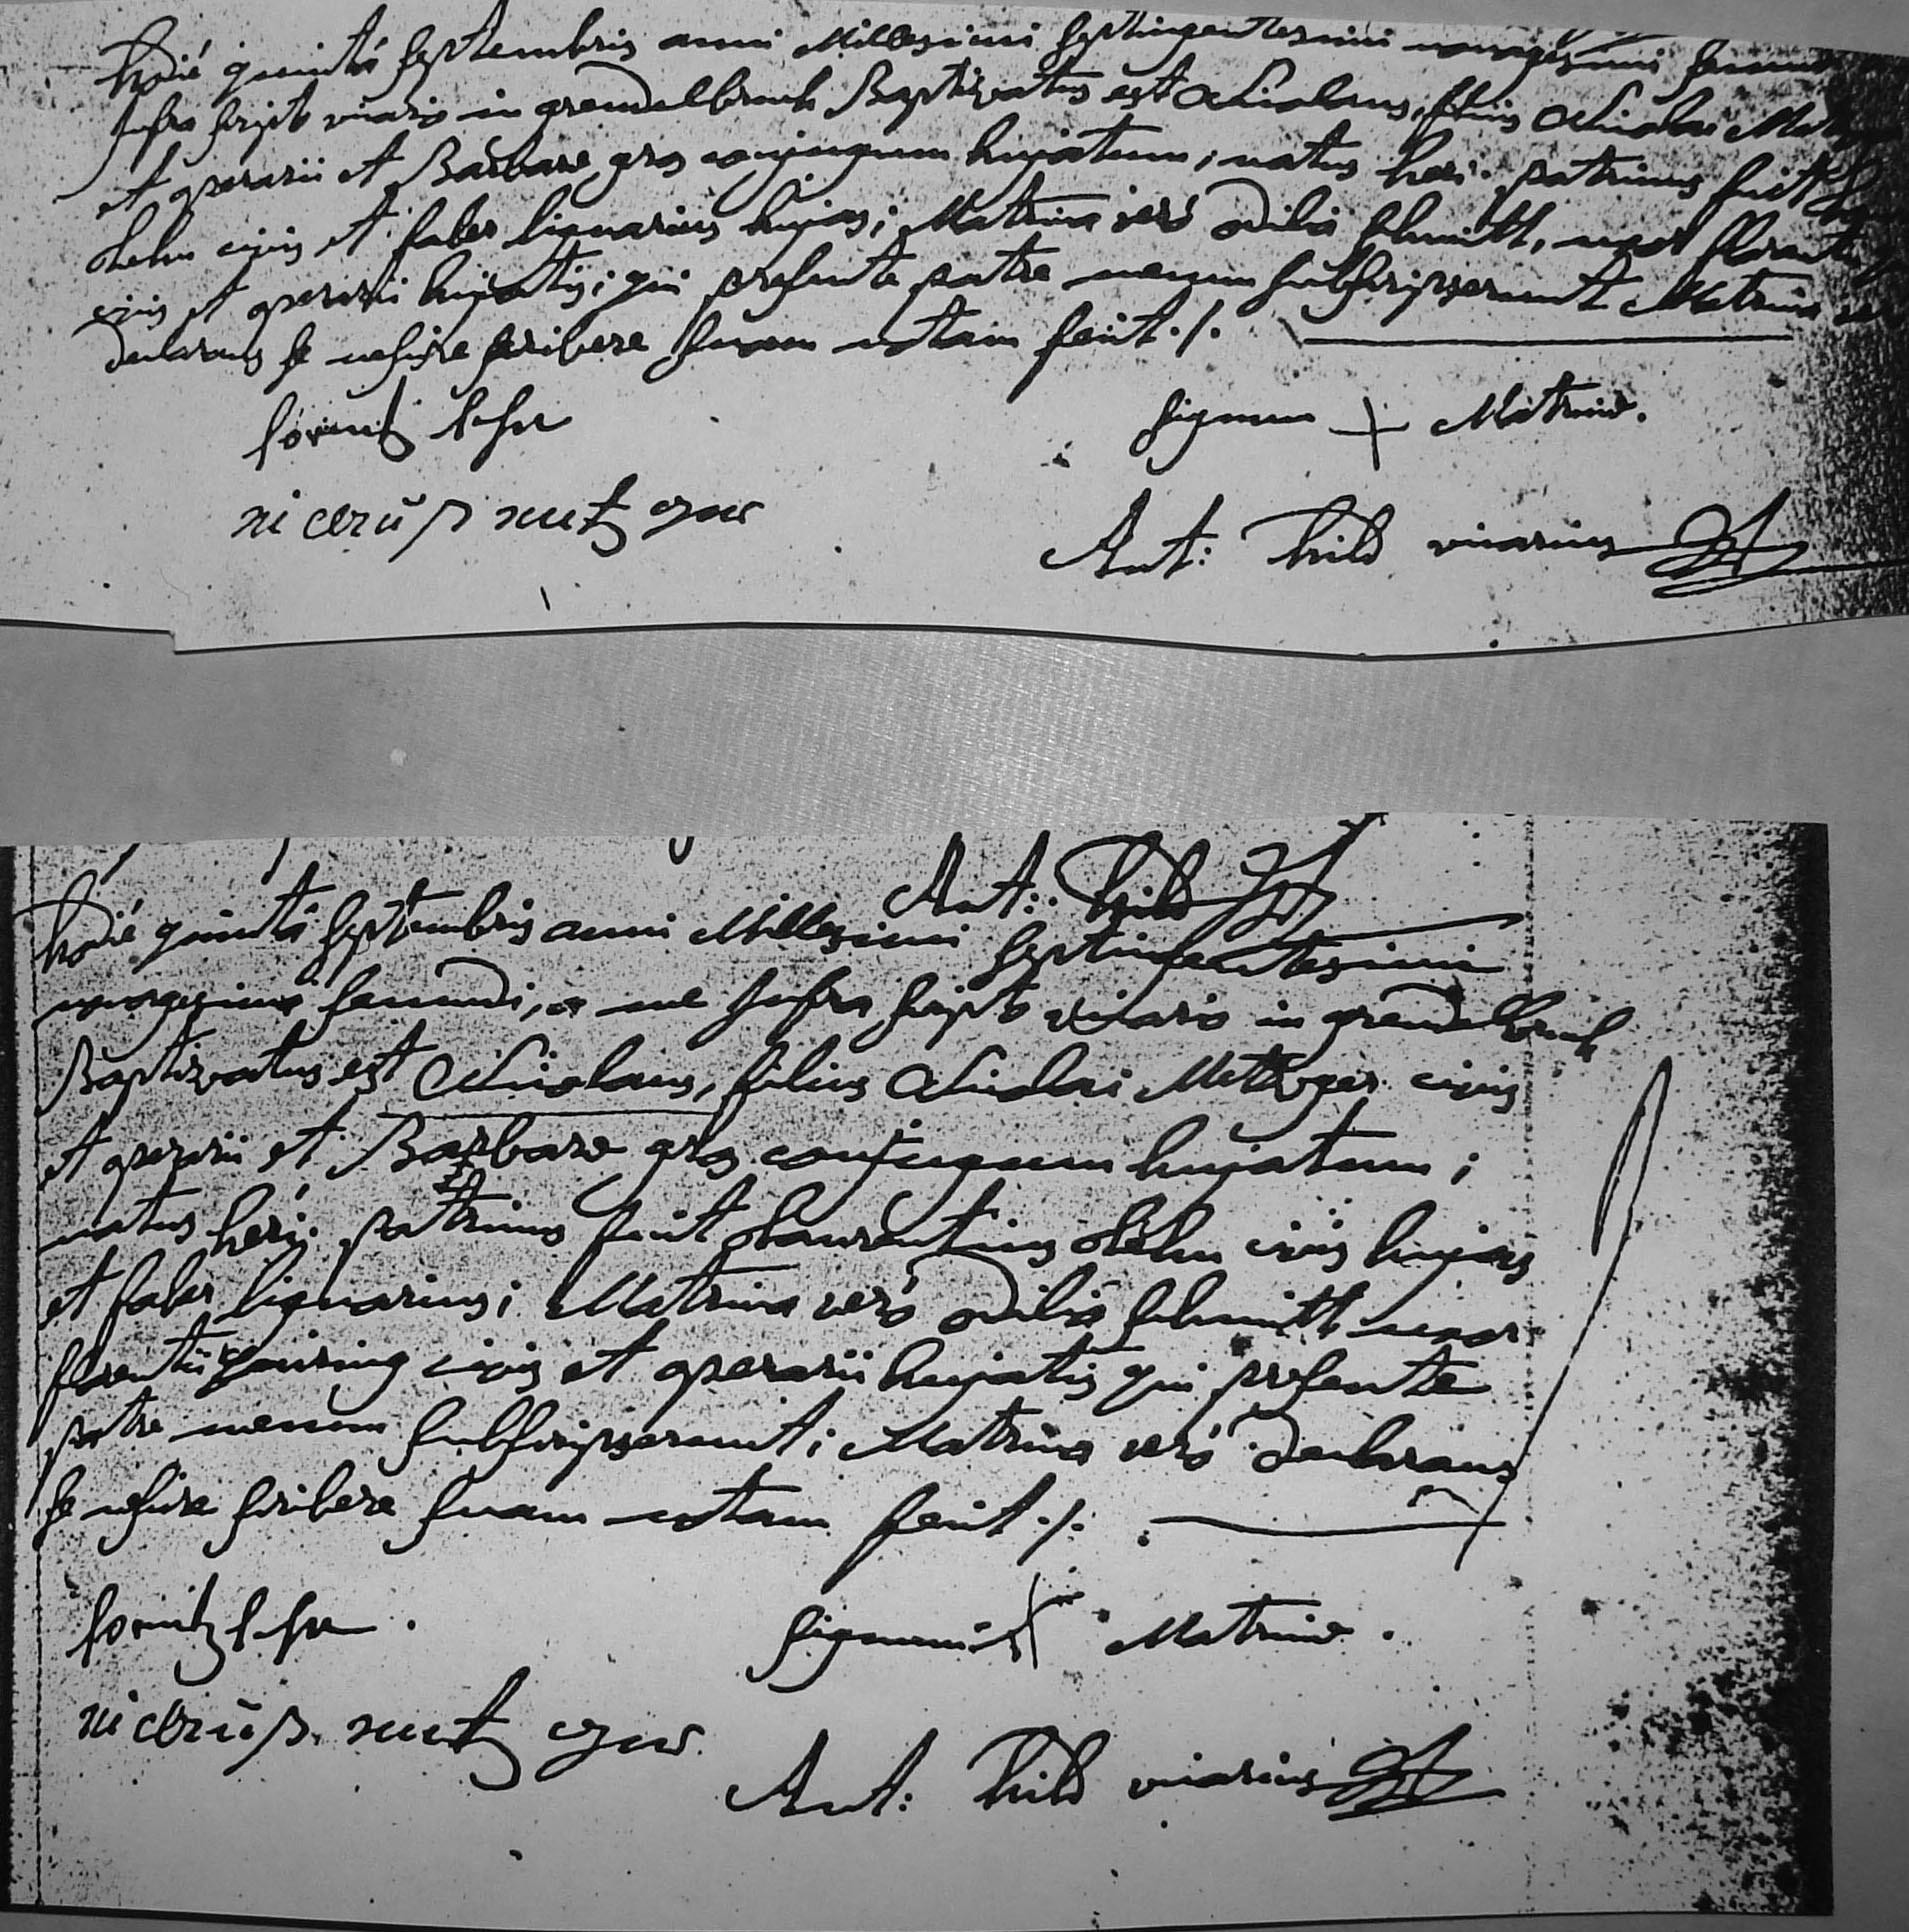 hodie quinta Septembris anni Millesimi Septingentesimi nonagesimi
infra script vicario in grendelbruch Baptizatus est Nicolaus, filius Nicolai
et operarii et Barbare gros conjugum hujatum; natus heri. patrinus fuit
Lehn civis et faber lignarius hujas; Matrina verò odilia schmitt, uxor florentii
civis et operarii hujatis; qui presente patre mecum subscripserunt Matrina verò
declarans se nescire scribere suam notam fecit ./.
signum + Matrine.
Ant: hild vicarius
Ant: hild
hodie quinta Septembris anni Millesimi Septingentesimi
nonagesimi secundi, a me infra script vicario in grendelbruch
Baptizatus est Nicolaus, filius Nicolai Metzger civis
et operarii et Barbare gros conjugum hujatum;
natus heri. patrinus fuit Laurentius Lehn civis hujas
et faber lignarius; Matrina verò odilia schmitt uxor
florentii civis et operarii hujatis qui presente
patre mecum subscripserunt; Matrina verò declarans
se nescire scribere suam notam fecit ./.
signum + Matrine.
Ant: hild vicarius